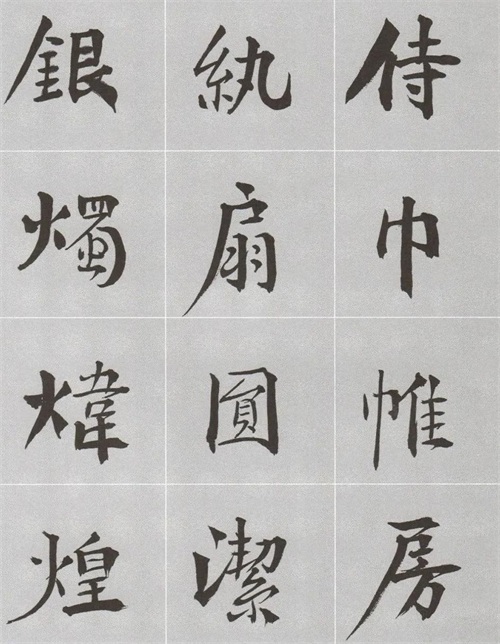 侍巾帷房
紈扇圓潔
銀燭煒煌